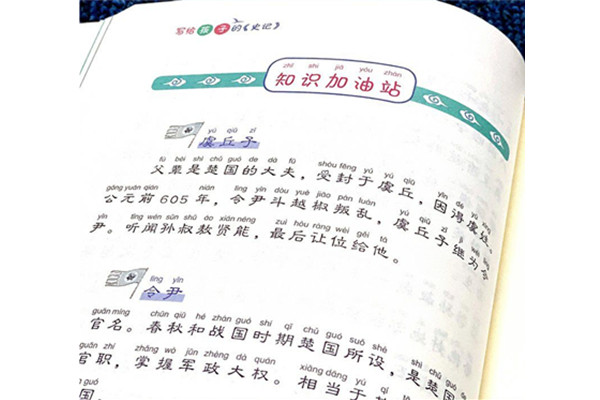 写给孩子的《史记》
zhī shi jiā yóu zhàn
知识加油站
yú qiū zǐ
虞丘子
fù bèi shì chǔ guó de dà fū shòu fēng yú yú qiū yīn dé yú xìng
父辈是楚国的大夫，受封于虞丘，因得虞姓。
gōng yuán qián nián lìng yǐn dòu yuè jiāo pàn luàn yú qiū zǐ jì wéi lìng
公元前605年，令尹斗越椒叛乱，虞丘子继为令
yǐn tīng wén sūn shū áo xián néng zuì hòu ràng wèi gěi tā
尹。听闻孙叔敖贤能，最后让位给他。
lìng yǐn
令尹
guān míng chūn qiū hé zhàn guó shí qī chǔ guó suǒ shè shì chǔ guó
官名。春秋和战国时期楚国所设，是楚国
guān zhí zhǎng wò jūn zhèng dà quán xiāng dāng yú
官职，掌握军政大权。相当于
guó
国。